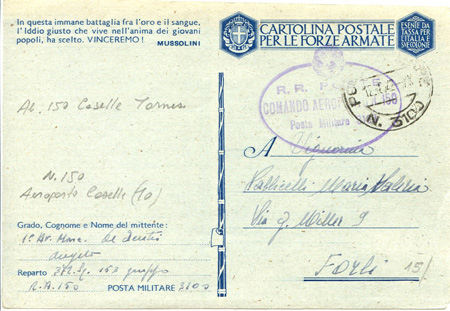 In questa immane battaglia fra l'oro e il sangue,
l'Iddio giusto che vive nell'anima dei giovani
popoli, ha scelto. VINCEREMO! MUSSOLINI
CARTOLINA POSTALE
PER LE FORZE ARMATE
ESENTE DA
TASSA PER
L'ITALIA E
SUE COLONIE
R. R. P
COMANDO AERO 150
Posta Militare
N. 3100
Ae. 150 Caselle Torinese
N. 150
Aeroporto Caselle (To)
A Signorina
Maria Valeria
Via G. Miller 9
Forlì
15/
Grado, Cognome e Nome del mittente:
1° Av. De Santis
Angelo
Reparto 153 gruppo
R.A. 150 POSTA MILITARE 3100